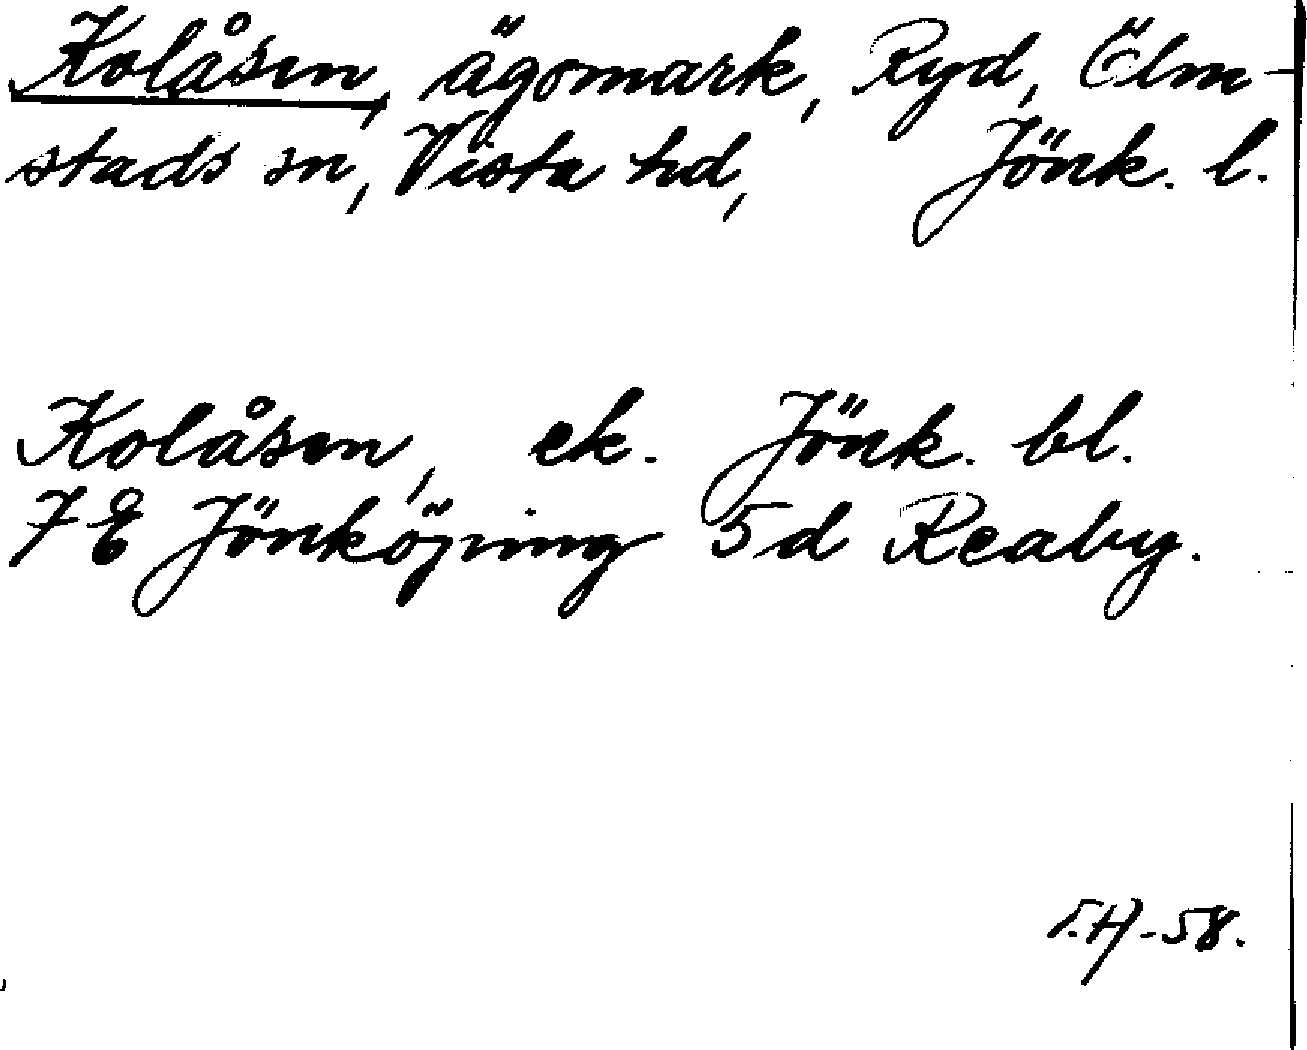 Kolåsen, ägomark, Ryd, Ölm-
stads sn, Vista hd, Jönk. l.
Kolåsen, ek. Jönk. bl.
7E Jönköping 5d Reaby.
-58.